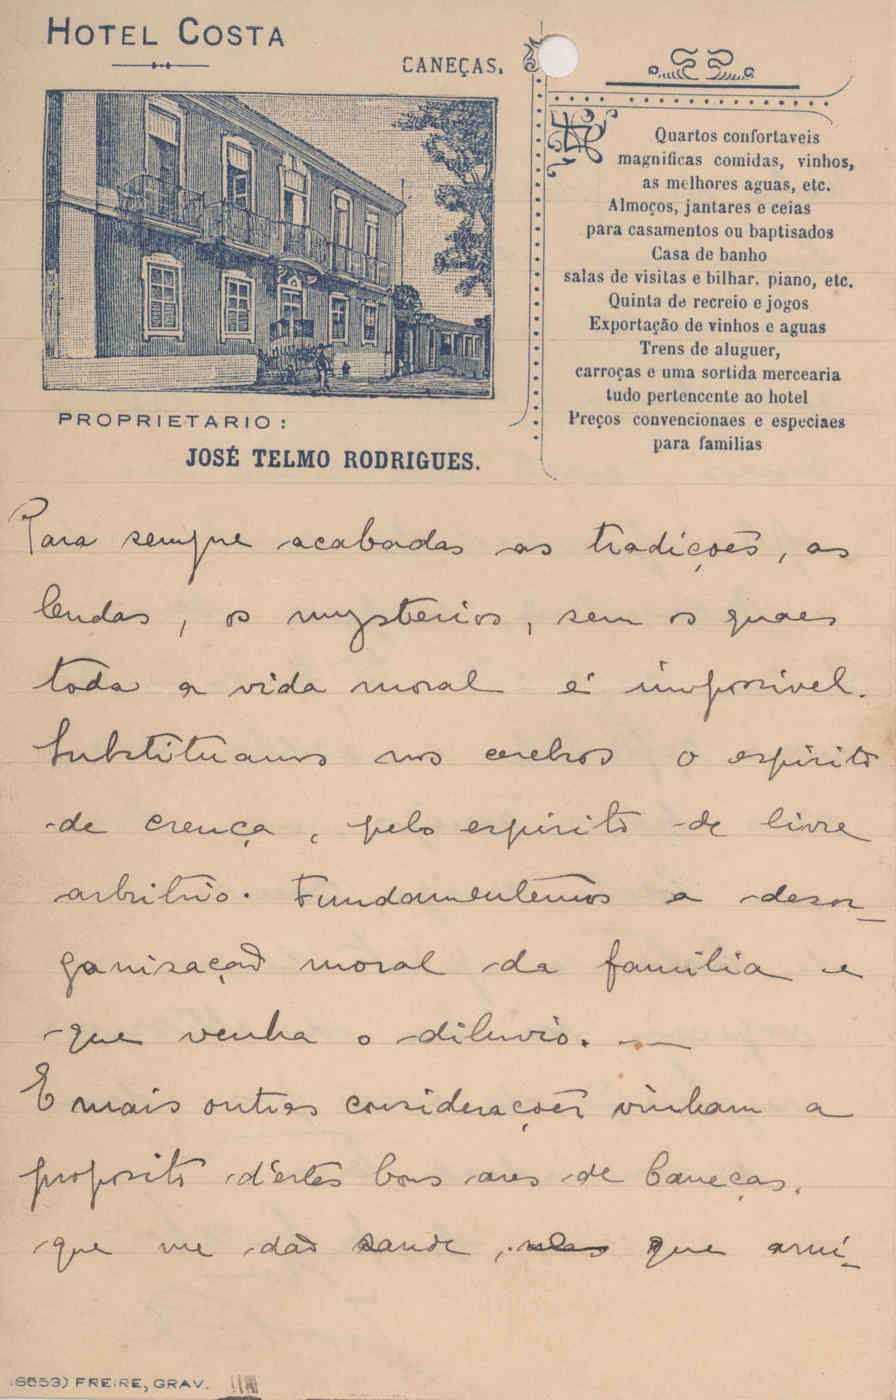 HOTEL COSTA
CANEÇAS,
Quartos confortaveis
magnificas comidas, vinhos,
as melhores aguas, etc.
Almoços, jantares e ceias
para casamentos ou baptisados
Casa de banho
salas de visitas e bilhar. piano, etc.
Quinta de recreio e jogos
Exportação de vinhos e aguas
Trens de aluguer,
carroças e uma sortida mercearia
tudo pertencente ao hotel
Preços convencionaes e especiaes
para familias
PROPRIETARIO:
JOSÉ TELMO RODRIGUES.
Para sempre acabadas as tradições, as
lendas, os mysterios, sem os quaes
toda a vida moral é impossivel.
Substituamos nos cerebros o espirito
de crença, pelo espirito de livre
arbitrio. Fundamentemos a desor-
ganisação moral da familia e
que venha o diluvio. —
E mais outras considerações vinham a
proposito d'estes bons ares de Caneças,
que me dão saude, mas que arruí-
(6553) FREIRE, GRAV.